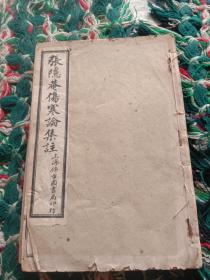 張隱菴傷寒論集註
上海錦章圖書局印行